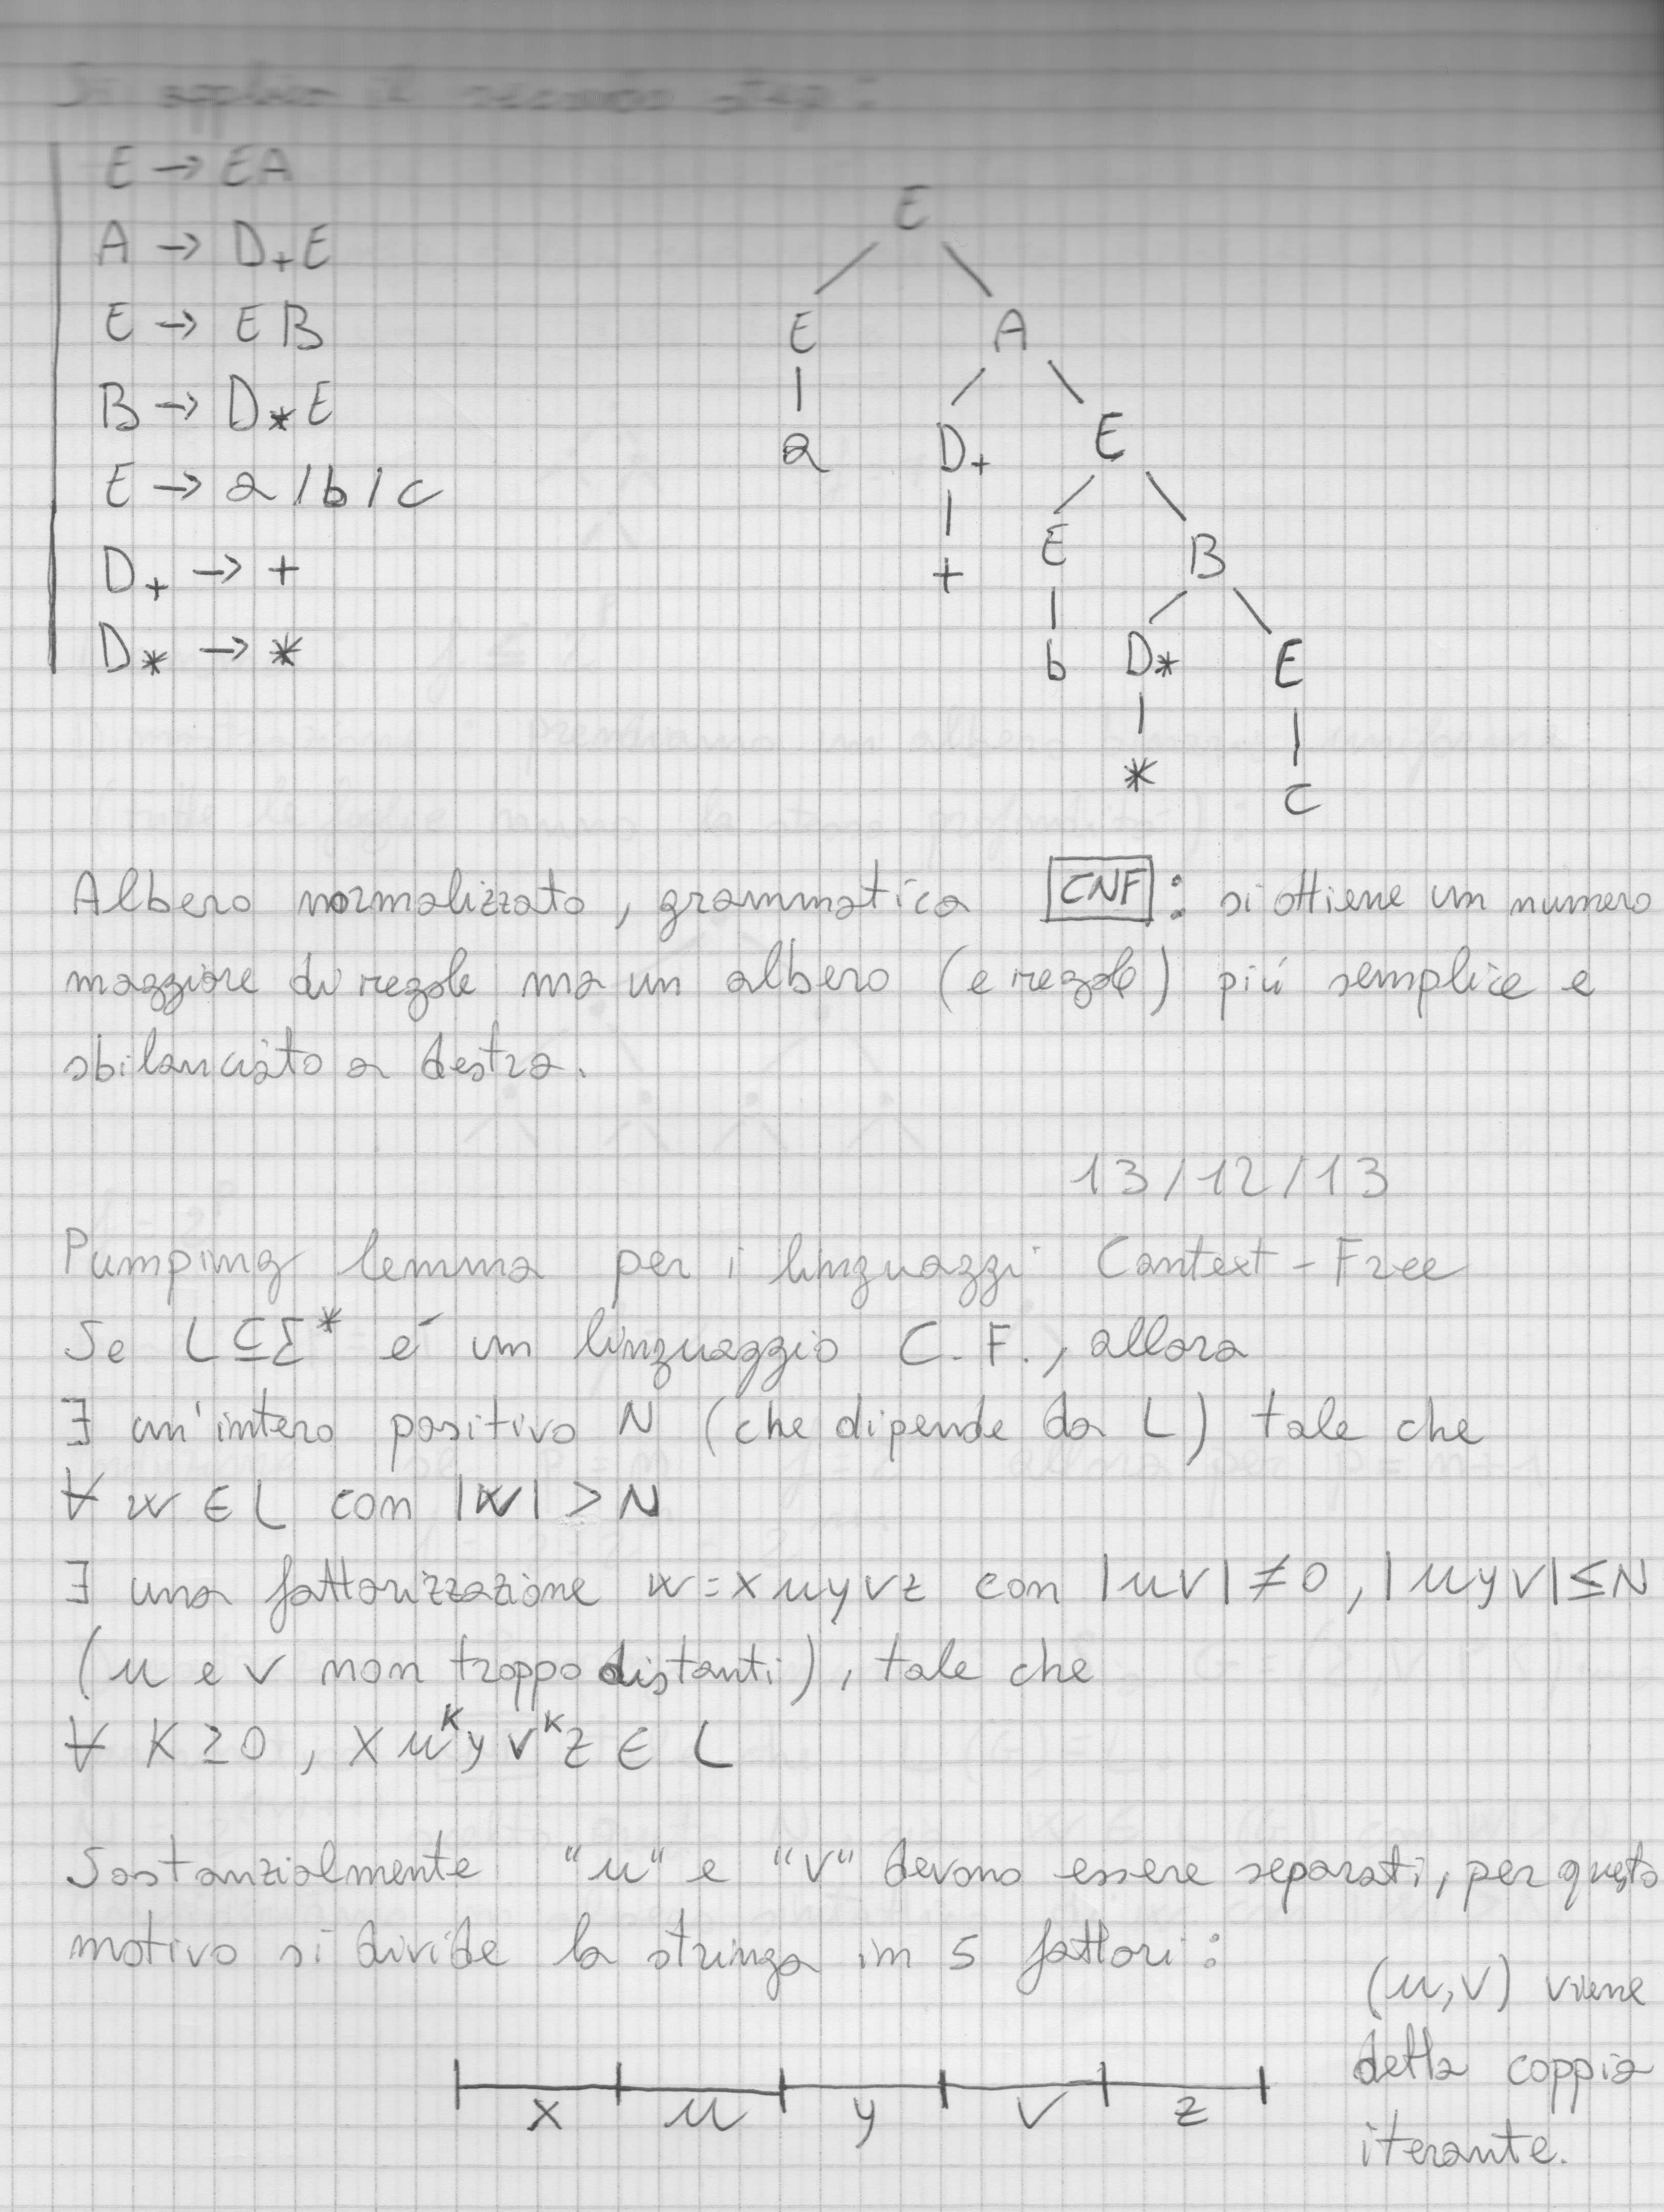 Si applica il secondo step:
E → EA
A → D₊E
E → EB
B → D*E
E → a/b/c
D₊ → +
D* → *
E
E A
a D₊ E
+ E B
b D* E
* c
Albero normalizzato, grammatica CNF: si ottiene un numero
maggiore di regole ma un albero (e regole) piú semplice e
sbilanciato a destra.
13/12/13
Pumping lemma per i linguaggi Context-Free
Se L⊆Σ* é un linguaggio C.F., allora
∃ un'intero positivo N (che dipende da L) tale che
∀ w ∈ L con |w| > N
∃ una fattorizzazione w=xuyvz con |uv|≠0, |uyv|≤N
(u e v non troppo distanti), tale che
∀ K≥0, xuᴷyvᴷz ∈ L
Sostanzialmente "u" e "v" devono essere separati, per questo
motivo si divide la stringa in 5 fattori:
(u,v) viene
detta coppia
iterante.
x u y v z